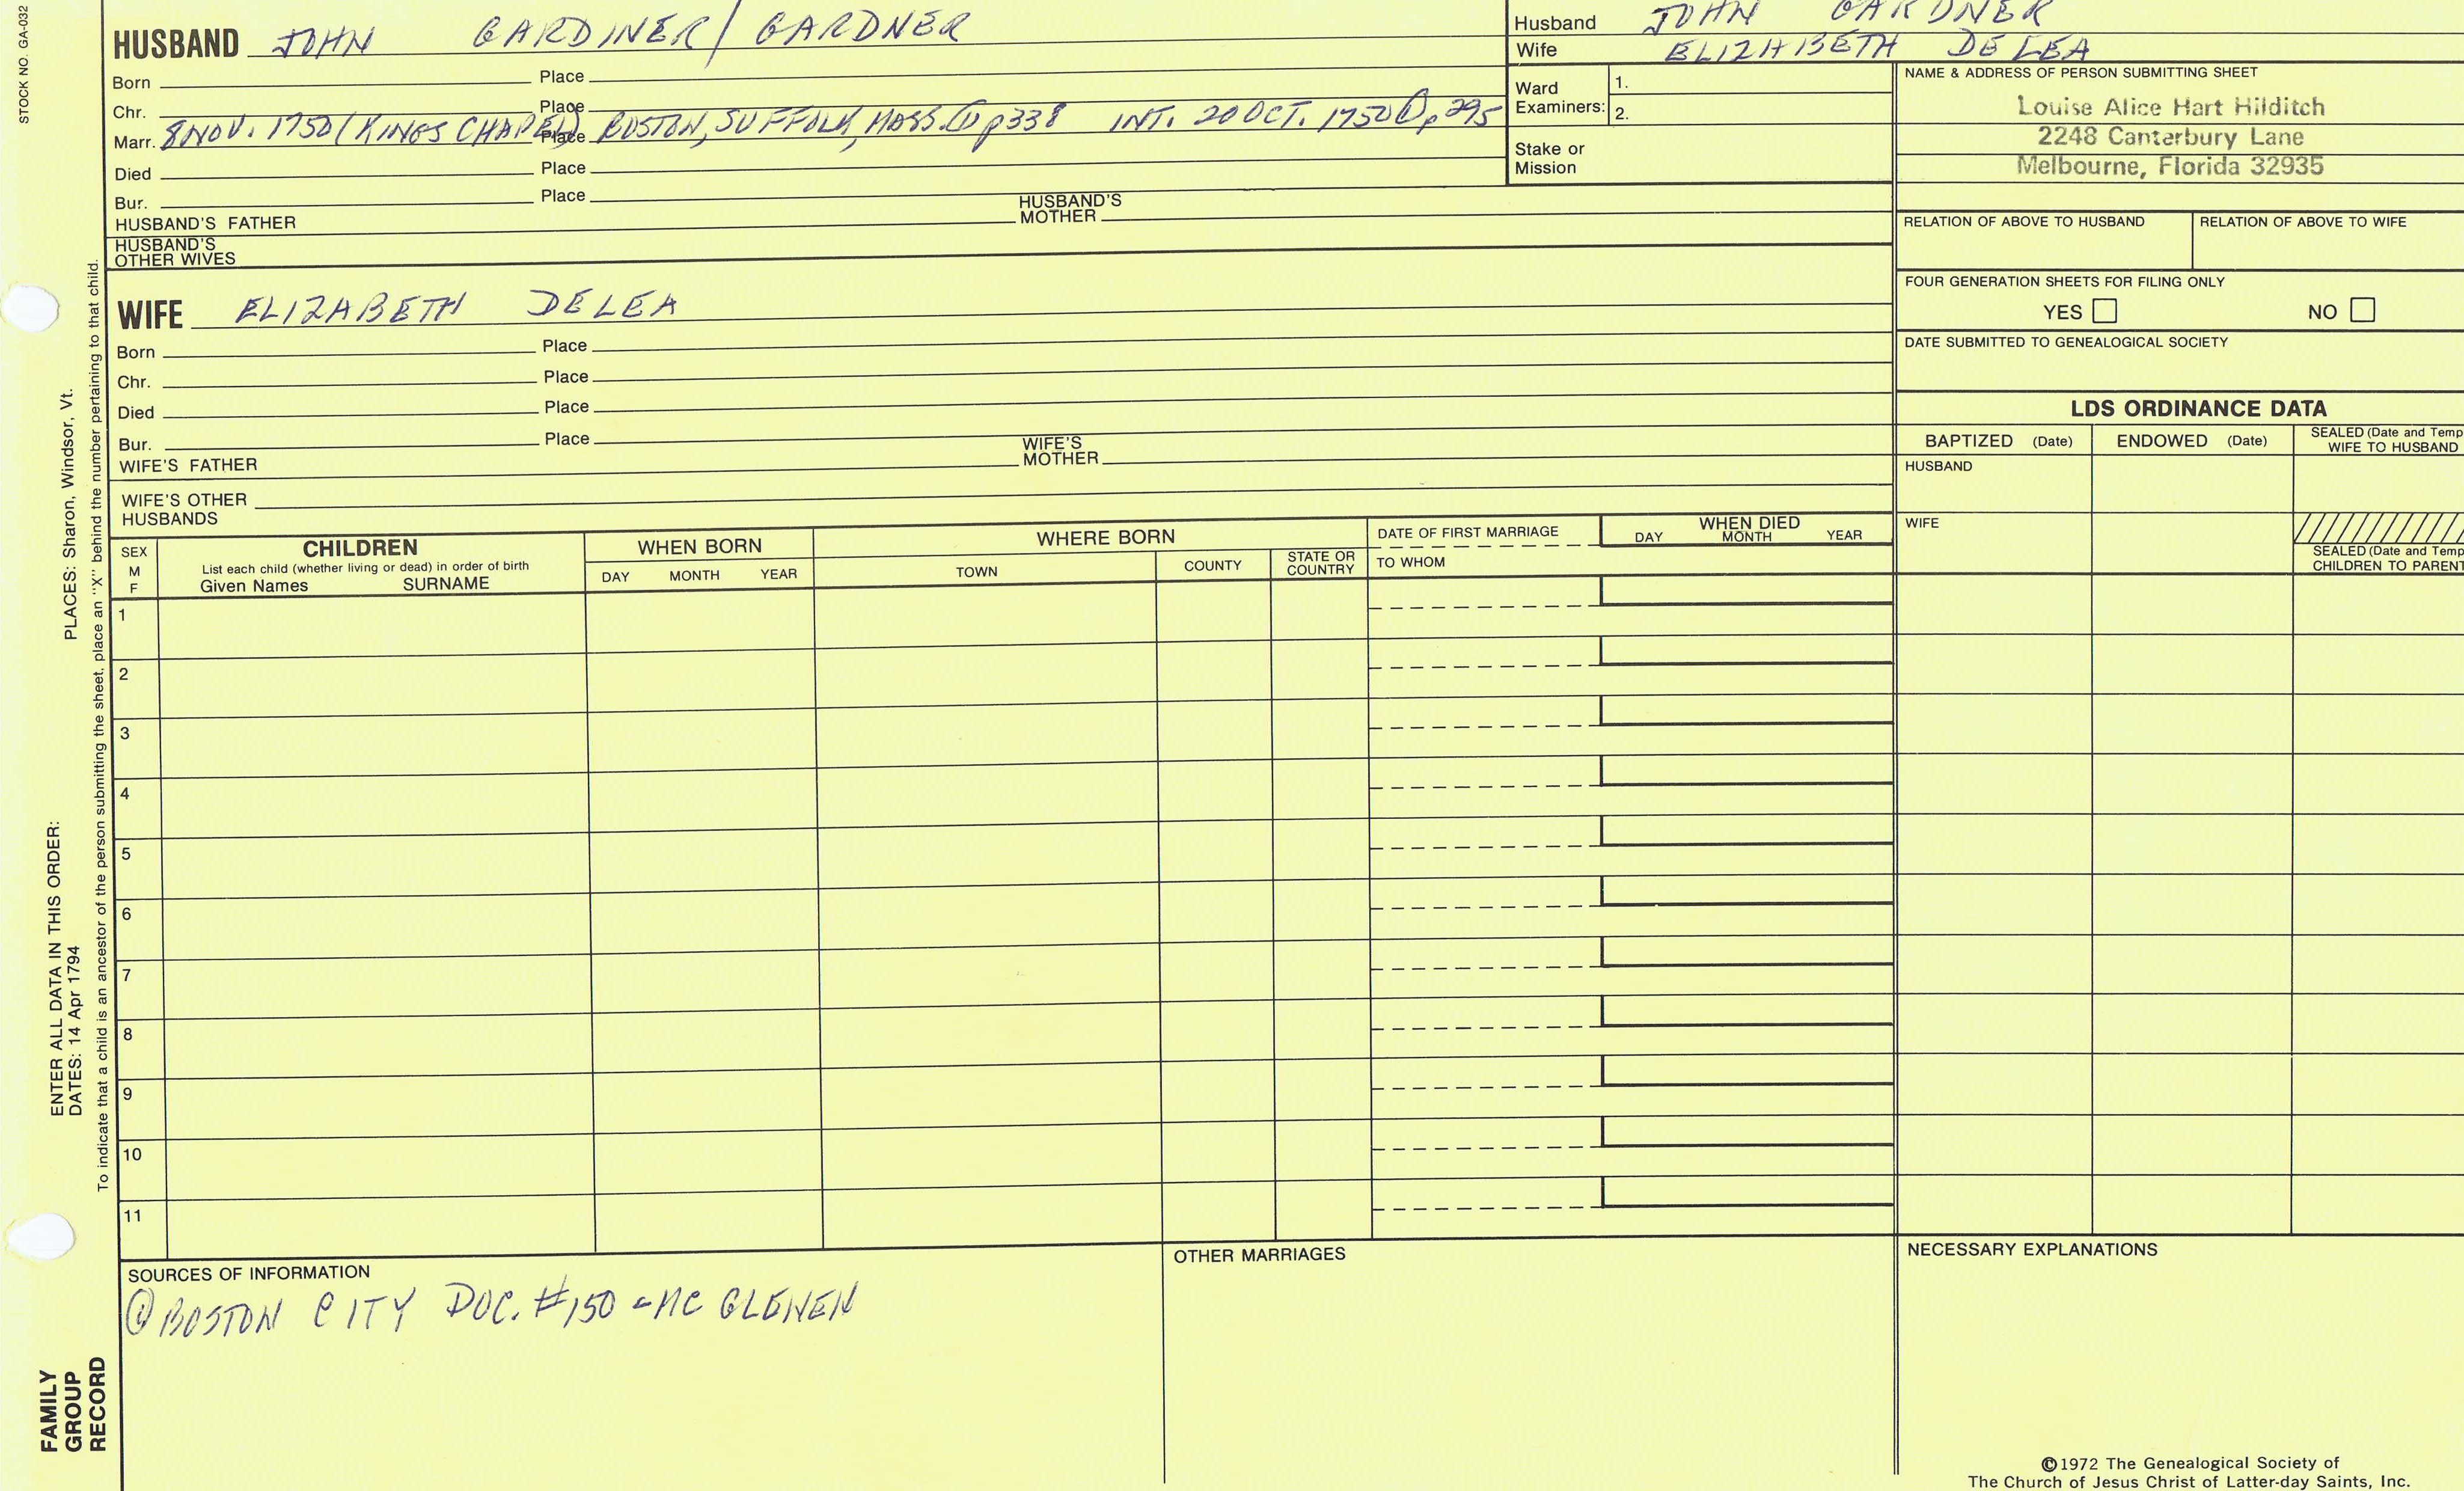 STOCK NO. GA-032
HUSBAND JOHN GARDINER/GARDNER
Born Place
Chr. Place
Marr. 8 NOV. 1750 (KINGS CHAPEL) Place BOSTON, SUFFOLK, MASS. ① p338 INT. 20 OCT. 1750 ① p295
Died Place
Bur. Place
HUSBAND'S FATHER HUSBAND'S MOTHER
HUSBAND'S OTHER WIVES
WIFE ELIZABETH DELEA
Born Place
Chr. Place
Died Place
Bur. Place
WIFE'S FATHER WIFE'S MOTHER
WIFE'S OTHER HUSBANDS
Husband JOHN GARDNER
Wife ELIZABETH DELEA
Ward Examiners: 1.
2.
Stake or Mission
NAME & ADDRESS OF PERSON SUBMITTING SHEET
Louise Alice Hart Hilditch
2248 Canterbury Lane
Melbourne, Florida 32935
RELATION OF ABOVE TO HUSBAND RELATION OF ABOVE TO WIFE
FOUR GENERATION SHEETS FOR FILING ONLY
YES NO
DATE SUBMITTED TO GENEALOGICAL SOCIETY
LDS ORDINANCE DATA
BAPTIZED (Date) ENDOWED (Date) SEALED (Date and Temp
WIFE TO HUSBAND
HUSBAND
WIFE
SEALED (Date and Temp
CHILDREN TO PARENT
SEX
M
F
CHILDREN
List each child (whether living or dead) in order of birth
Given Names SURNAME
WHEN BORN
DAY MONTH YEAR
WHERE BORN
TOWN COUNTY STATE OR COUNTRY
DATE OF FIRST MARRIAGE
TO WHOM
WHEN DIED
DAY MONTH YEAR
1
2
3
4
5
6
7
8
9
10
11
SOURCES OF INFORMATION
① BOSTON CITY DOC. #150 - MC GLENEN
OTHER MARRIAGES
NECESSARY EXPLANATIONS
©1972 The Genealogical Society of
The Church of Jesus Christ of Latter-day Saints, Inc.
PLACES: Sharon, Windsor, Vt.
ENTER ALL DATA IN THIS ORDER:
DATES: 14 Apr 1794
To indicate that a child is an ancestor of the person submitting the sheet, place an "X" behind the number pertaining to that child.
FAMILY
GROUP
RECORD